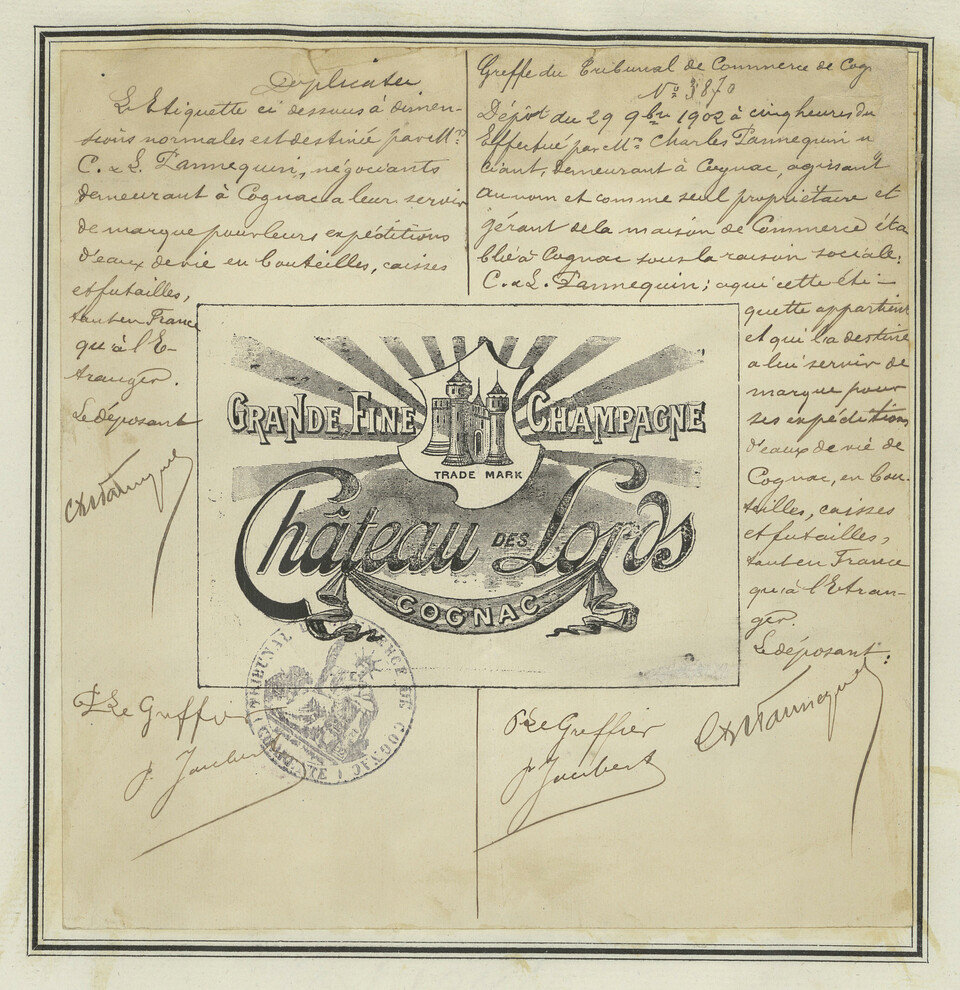 Duplicata
L'Etiquette ci dessous à dimen-
sions normales est destinée par Mrs
C. & L. Tannequin, négociants
demeurant à Cognac a leur servir
de marque pour leurs expéditions
d'eaux de vie en bouteilles, caisses
et futailles,
tant en France
qu'à l'E-
tranger.
Le déposant
Ch Tannequin
Greffe du Tribunal de Commerce de Cog
No 3870
Dépôt du 29 9bre 1902 à cinq heures du
Effectué par Mr Charles Tannequin n
ciant, demeurant à Cognac, agissant
au nom et comme seul propriétaire et
gérant de la maison de Commerce éta
blie à Cognac sous la raison sociale:
C. & L. Tannequin; a qui cette éti-
quette appartient
et qui la destine
a lui servir de
marque pour
ses expéditions
d'eaux de vie de
Cognac, en bou-
teilles, caisses
et futailles,
tant en France
qu'à l'Etran-
ger.
Le déposant:
Ch Tannequin
GRANDE FINE CHAMPAGNE
TRADE MARK
Château DES Lords
COGNAC
TRIBUNAL DE COMMERCE DE COGNAC
P. Le Greffi
p. Joubert
P. Le Greffier
p. Joubert